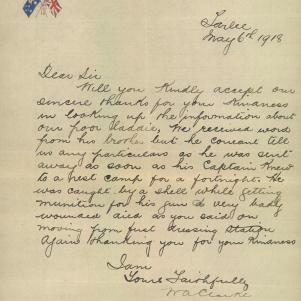 Tarlee
May 6th 1918
Dear Sir
Will you Kindly accept our
sincere thanks for your Kindness
in looking up the information about
our poor laddie, We received word
from his brother but he couldnt tell
us any particulars as he was sent
away as soon as his Captain Knew
to a rest camp for a fortnight. He
was caught by a shell while getting
munition for his gun & very badly
wounded died as you said on
moving from first dressing station
Again thanking you for your Kindness
I am
Yours Faithfully
W A Clarke